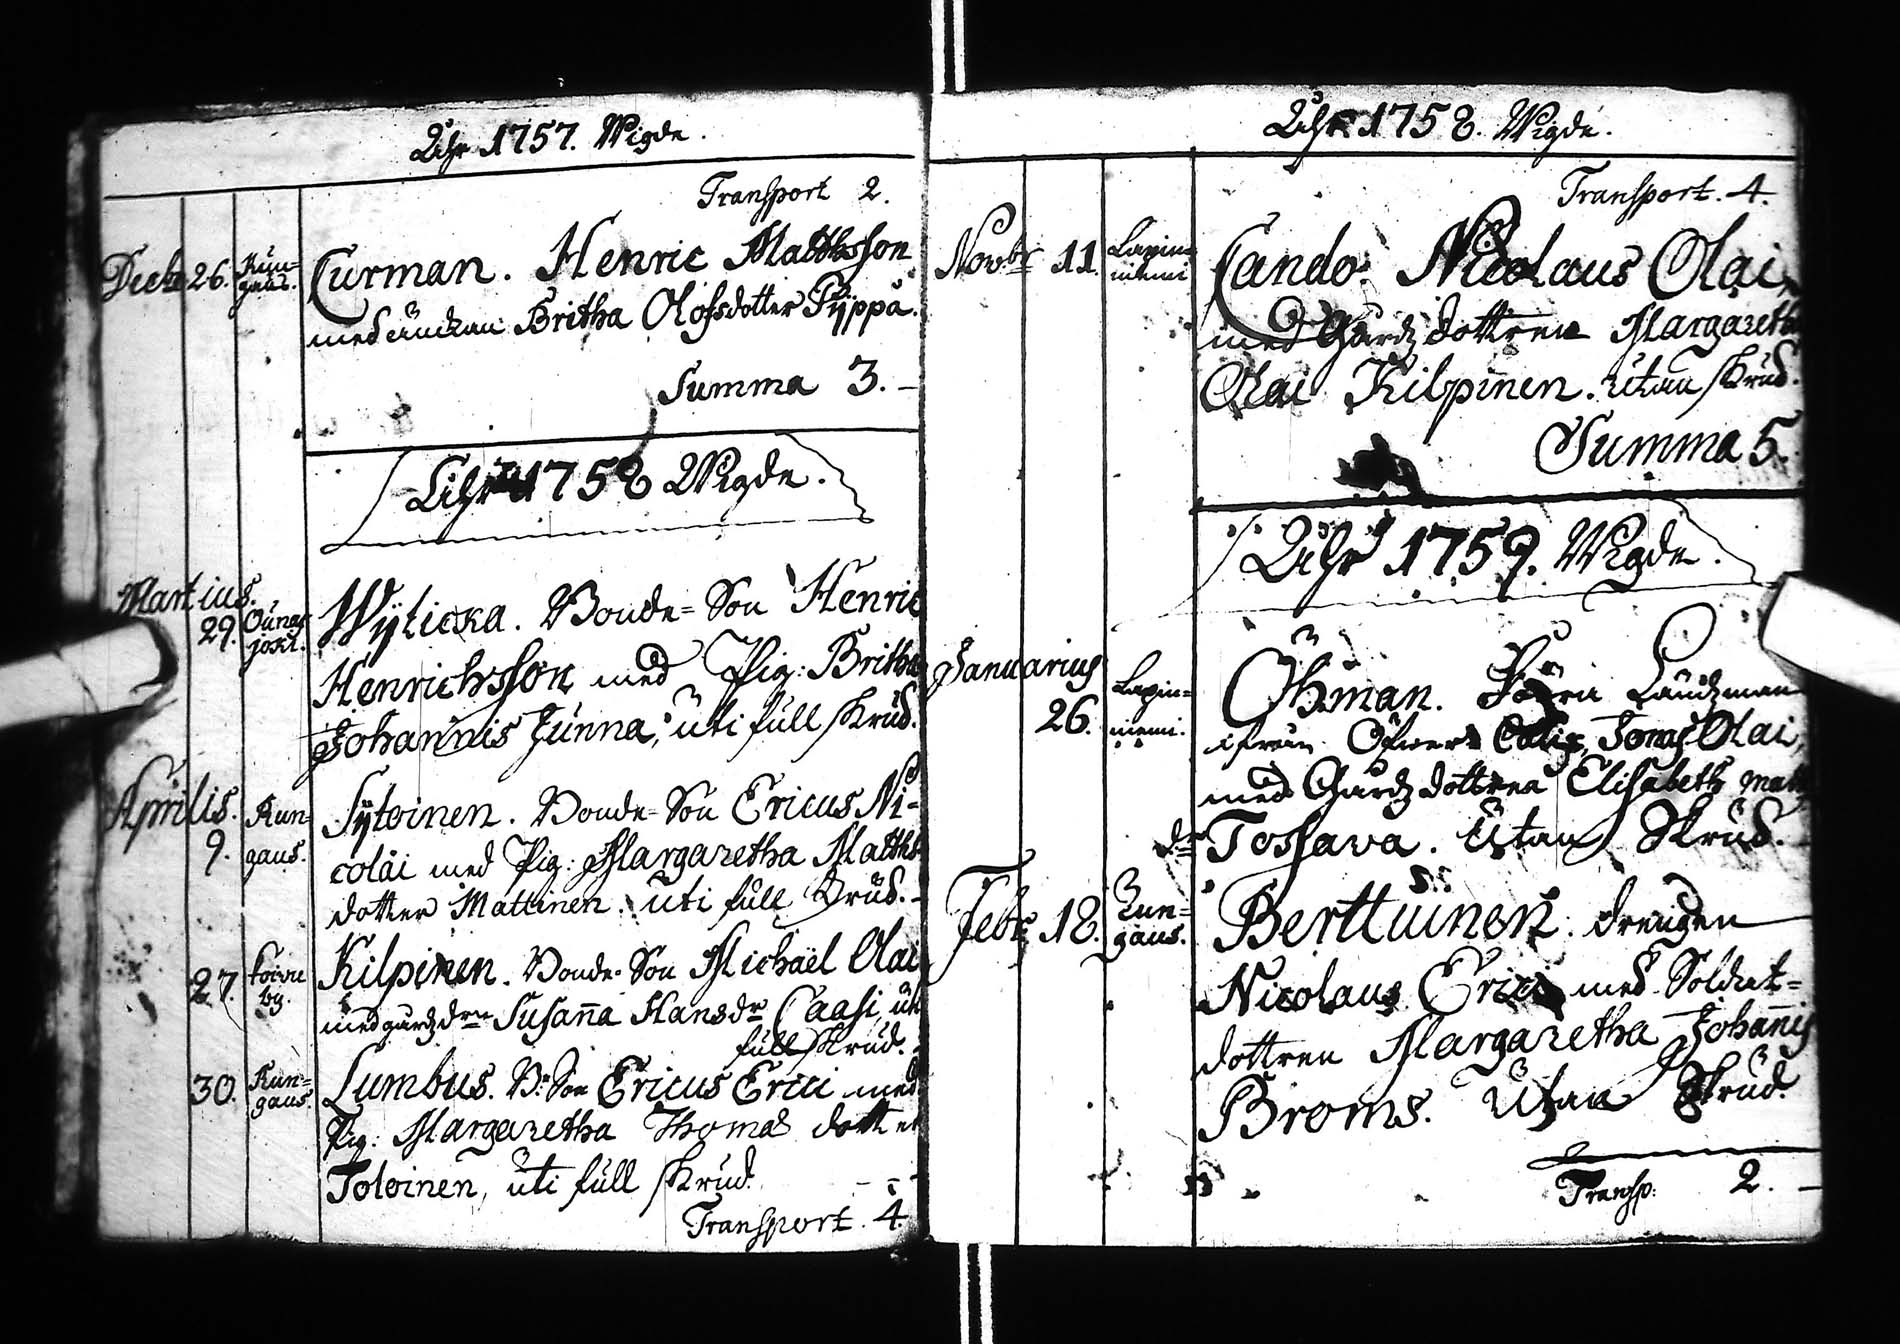 Åhr 1757. Wigde.
Transport 2.
Decbr 26. Kun=
gäus.
Curman. Henric Matthsson
med änckan Britha Olofsdotter Pyppä.
Summa 3.
Åhr 1758 Wigde.
Martius.
29. Ounas
joki.
Wylicka. Bonde=Son Henric
Henrichsson med Pig: Britha
Johannis Junna, uti full skrud.
Aprilis.
9. Kun=
gäus.
Sytoinen. Bonde=Son Ericus Ni=
colai med Pig: Margaretha Matths
dotter Mattinen. uti full Skrud.
27. Koivu
by.
Kilpinen. Bonde-Son Michaël Olai
med gårdzdrn Susanna Hansdr Caasi, uti
full skrud.
30. Kun=
gäus.
Lumbus. B: Son Ericus Erici med
Pig: Margaretha Thomas dotter
Toloinen, uti full skrud.
Transport. 4.
Åhr 1758. Wigde.
Transport. 4.
Novbr 11. Lapin=
niemi
Cando. Nicolaus Olai,
med Gårdz dottren Margaretha
Olai Kilpinen. utan skrud.
Summa 5.
Åhr 1759. Wigde.
Januarius
26. Lapin=
niemi.
Öhman. Länzman
ifrån Öfwer Calix, Jonas Olai,
med Gårdz dottren Elisabeth Math
dr Tossava. Utan Skrud.
Febr. 18. Kun=
gäus.
Berttuinen. drengen
Nicolaus Erici med Soldat=
dottren Margaretha Johannis
Broms. Utan Skrud.
Transp: 2.